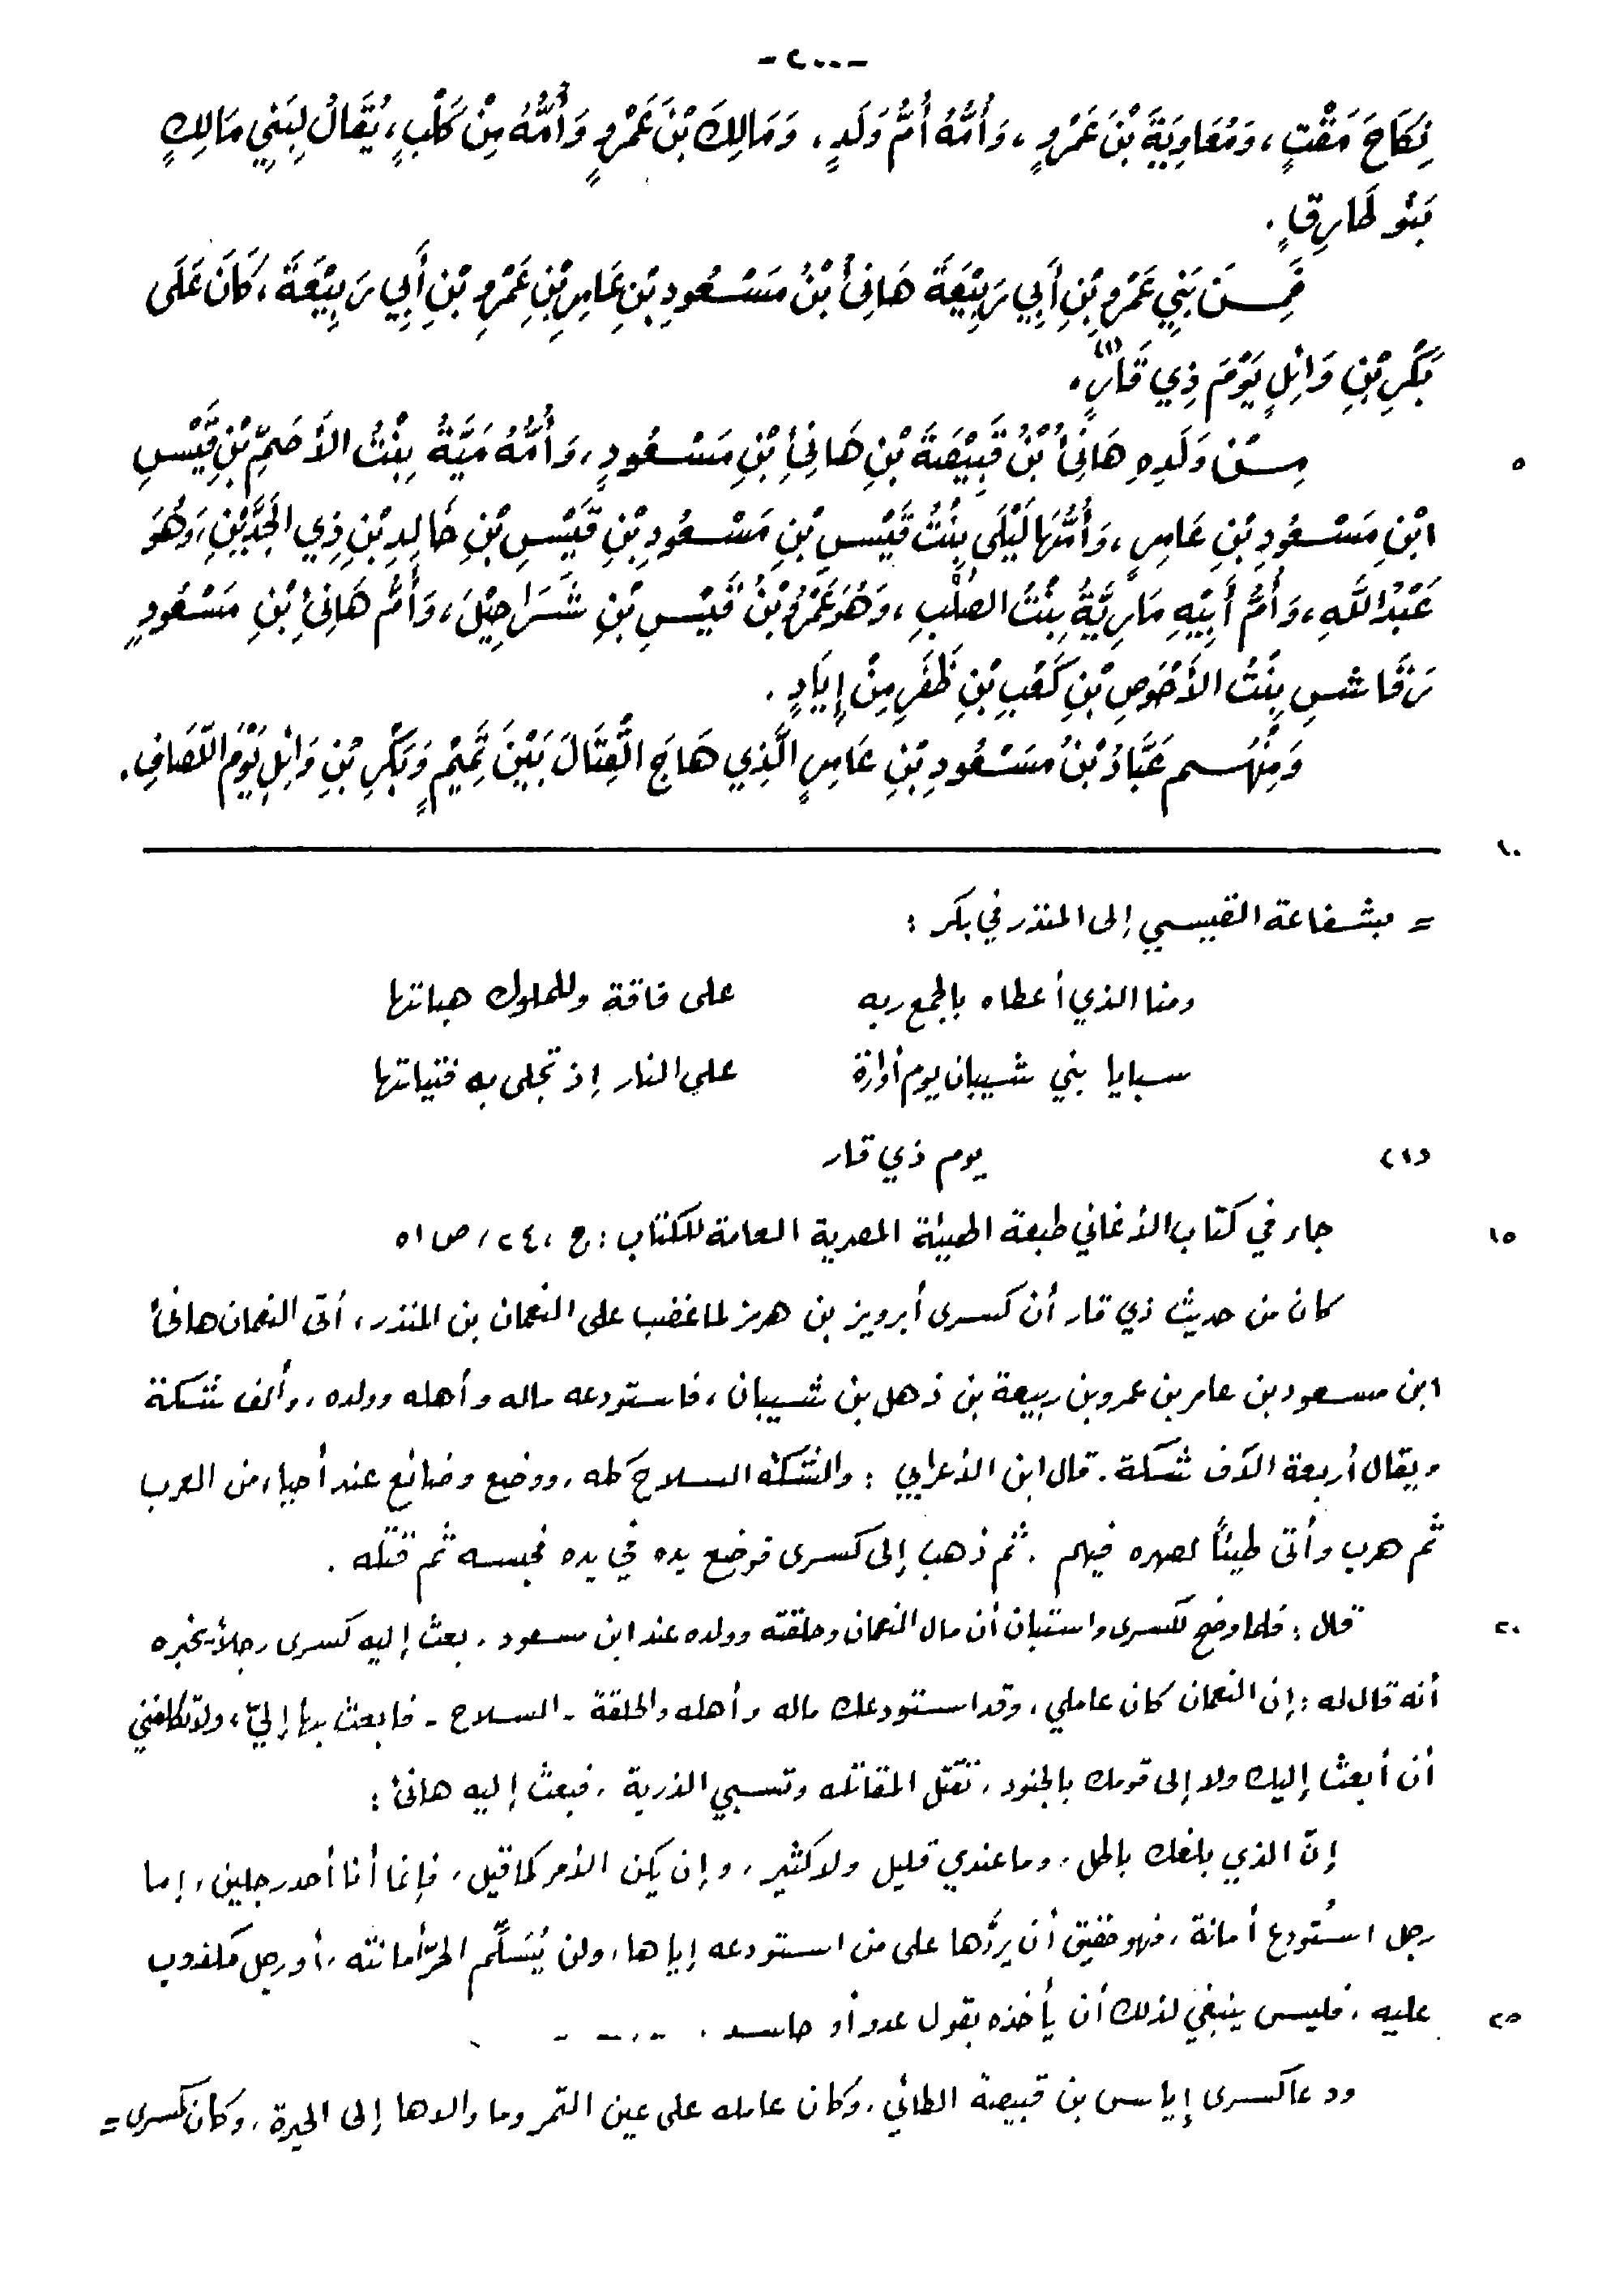 -٢٠٠-
نِكَاحَ مَقْتٍ، وَمُعَاوِيَةَ بْنَ عَمْرٍو، وَأُمُّهُ أُمُّ وَلَدٍ، وَمَالِكَ بْنَ عَمْرٍو وَأُمُّهُ مِنْ كَلْبٍ، يُقَالُ لِبَنِي مَالِكٍ
بَنُو طَارِقٍ.
فَمِنْ بَنِي عَمْرِو بْنِ أَبِي رَبِيْعَةَ هَانِئُ بْنُ مَسْعُودِ بْنِ عَامِرِ بْنِ عَمْرِو بْنِ أَبِي رَبِيْعَةَ، كَانَ عَلَى
بَكْرِ بْنِ وَائِلٍ يَوْمَ ذِي قَارٍ(١).
٥ مِنْ وَلَدِهِ هَانِئُ بْنُ قَبِيْصَةَ بْنِ هَانِئِ بْنِ مَسْعُودٍ، وَأُمُّهُ مَيَّةُ بِنْتُ الأَصَمِّ بْنِ قَيْسِ
ابْنِ مَسْعُودِ بْنِ عَامِرٍ، وَأُمُّهَا لَيْلَى بِنْتُ قَيْسِ بْنِ مَسْعُودِ بْنِ قَيْسِ بْنِ خَالِدِ بْنِ ذِي الجَدَّيْنِ، وَهُوَ
عَبْدُاللَّهِ، وَأُمُّ أَبِيْهِ مَارِيَّةُ بِنْتُ الصُلْبِ، وَهُوَ عَمْرُو بْنُ قَيْسِ بْنِ شَرَاحِيْلَ، وَأُمُّ هَانِئِ بْنِ مَسْعُودٍ
رَقَاشِ بِنْتُ الأَحْوَصِ بْنِ كَعْبِ بْنِ ظَفَرِ مِنْ إِيَادٍ.
وَمِنْهُم عَبَّادُ بْنُ مَسْعُودِ بْنِ عَامِرٍ الَّذِي هَاجَ القِتَالَ بَيْنَ تَمِيْمٍ وَبَكْرِ بْنِ وَائِلٍ يَوْمَ اللّصَافِ.
١٠
= بشفاعة القيسي إلى المنذر في بكر :
ومنا الذي أعطاه بالجمع ربه على فاقة وللملوك هباتها
سبايا بني شيبان يوم أوارة على النار إذ تجلى به فتياتها
(١) يوم ذي قار
١٥ جاء في كتاب الأغاني طبعة الهيئة المصرية العامة للكتاب : ج ، ٢٤ ، ص ٥١
كان من حديث ذي قار أن كسرى أبرويز بن هرمز لما غضب على النعمان بن المنذر ، أتى النعمان هانئ
ابن مسعود بن عامر بن عمرو بن ربيعة بن ذهل بن شيبان ، فاستودعه ماله وأهله وولده ، وألف شكة
ويقال أربعة آلاف شكة . قال ابن الأعرابي : والشكة السلاح كله ، ووضع وضائع عند أحياء من العرب
ثم هرب وأتى طيئاً لصهره فيهم . ثم ذهب إلى كسرى فوضع يده في يده فحبسه ثم قتله .
٢٠ قال : فلما وضح لكسرى واستبان أن مال النعمان وحلقته وولده عند ابن مسعود ، بعث إليه كسرى رجلاً يخبره
أنه قال له : إن النعمان كان عاملي ، وقد استودعك ماله وأهله والحلقة - السلاح - فابعث بها إليّ ، ولا تكلفني
أن أبعث إليك ولا إلى قومك بالجنود ، تقتل المقاتلة وتسبي الذرية ، فبعث إليه هانئ :
إنّ الذي بلغك باطل ، وما عندي قليل ولا كثير ، وإن يكن الأمر كما قيل ، فإنما أنا أحد رجلين ، إما
رجل استُودع أمانة ، فهو حقيق أن يردَّها على من استودعه إياها ، ولن يُسَلِّم الحرّ أمانته ، أو رجل مكذوب
٢٥ عليه ، فليس ينبغي لذلك أن يأخذه بقول عدو أو حاسد .
ودعا كسرى إياس بن قبيصة الطائي ، وكان عامله على عين التمر وما والاها إلى الحيرة ، وكان كسرى =